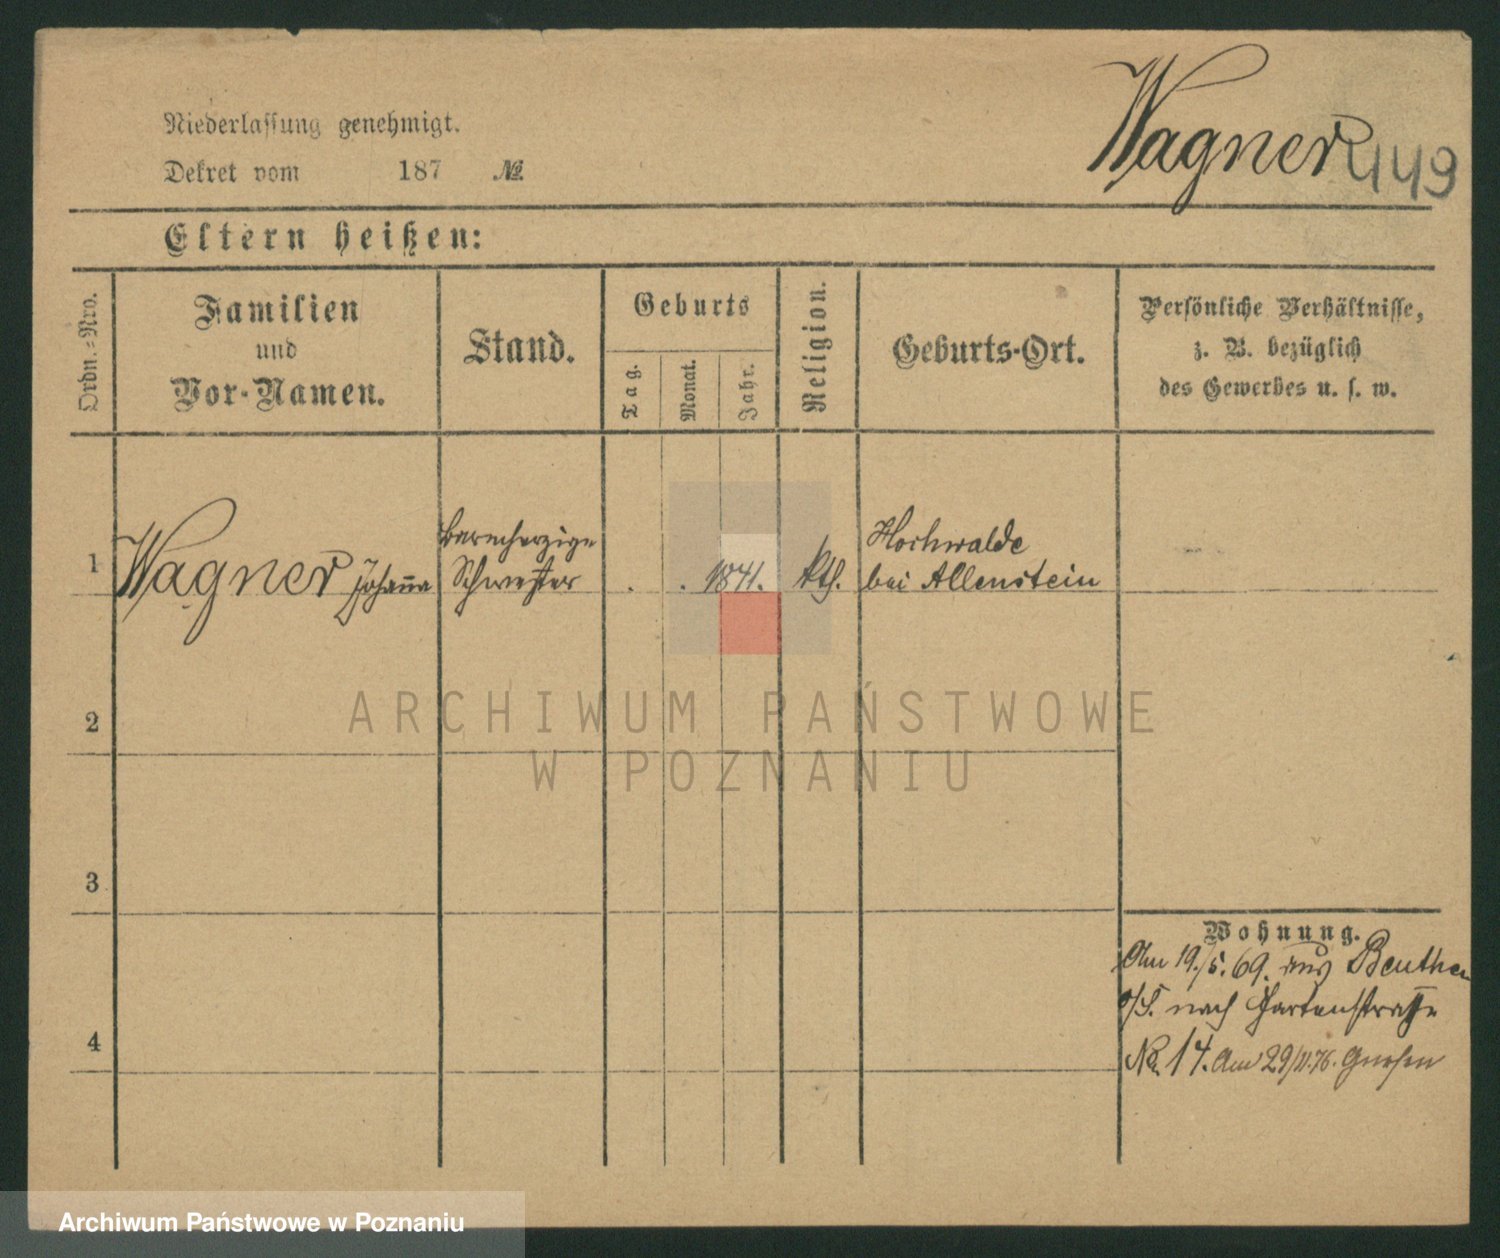 Niederlassung genehmigt.
Dekret vom 187 №
Wagner
449
Eltern heißen:
Ordn.-Nro.
Familien
und
Vor-Namen.
Stand.
Geburts
Tag.
Monat.
Jahr.
Religion.
Geburts-Ort.
Persönliche Verhältnisse,
z. B. bezüglich
des Gewerbes u. s. w.
1
Wagner Johanna
Barmherzige
Schwester
. . 1841.
kth.
Hochwalde
bei Allenstein
2
3
4
Wohnung.
Am 19./5. 69. aus Beuthen
o/S. nach Gartenstraße
No. 14. Am 29/11.76. Gnesen
ARCHIWUM PAŃSTWOWE
W POZNANIU
Archiwum Państwowe w Poznaniu